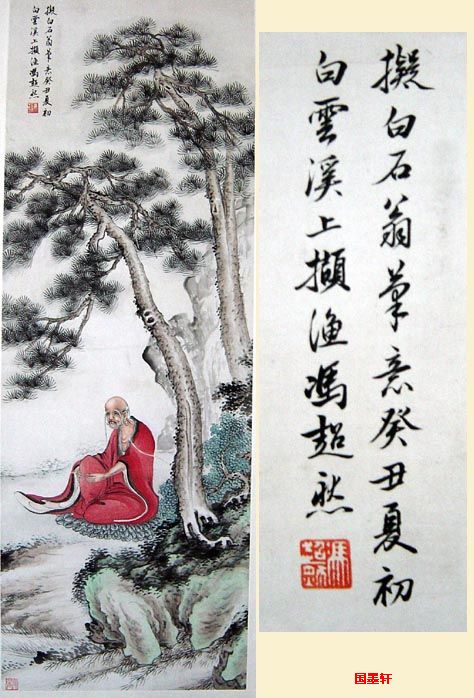 擬白石翁筆意癸丑夏初
白雲溪上懶漁馮超然
擬白石翁筆意癸丑夏初
白雲溪上懶漁馮超然
国墨轩